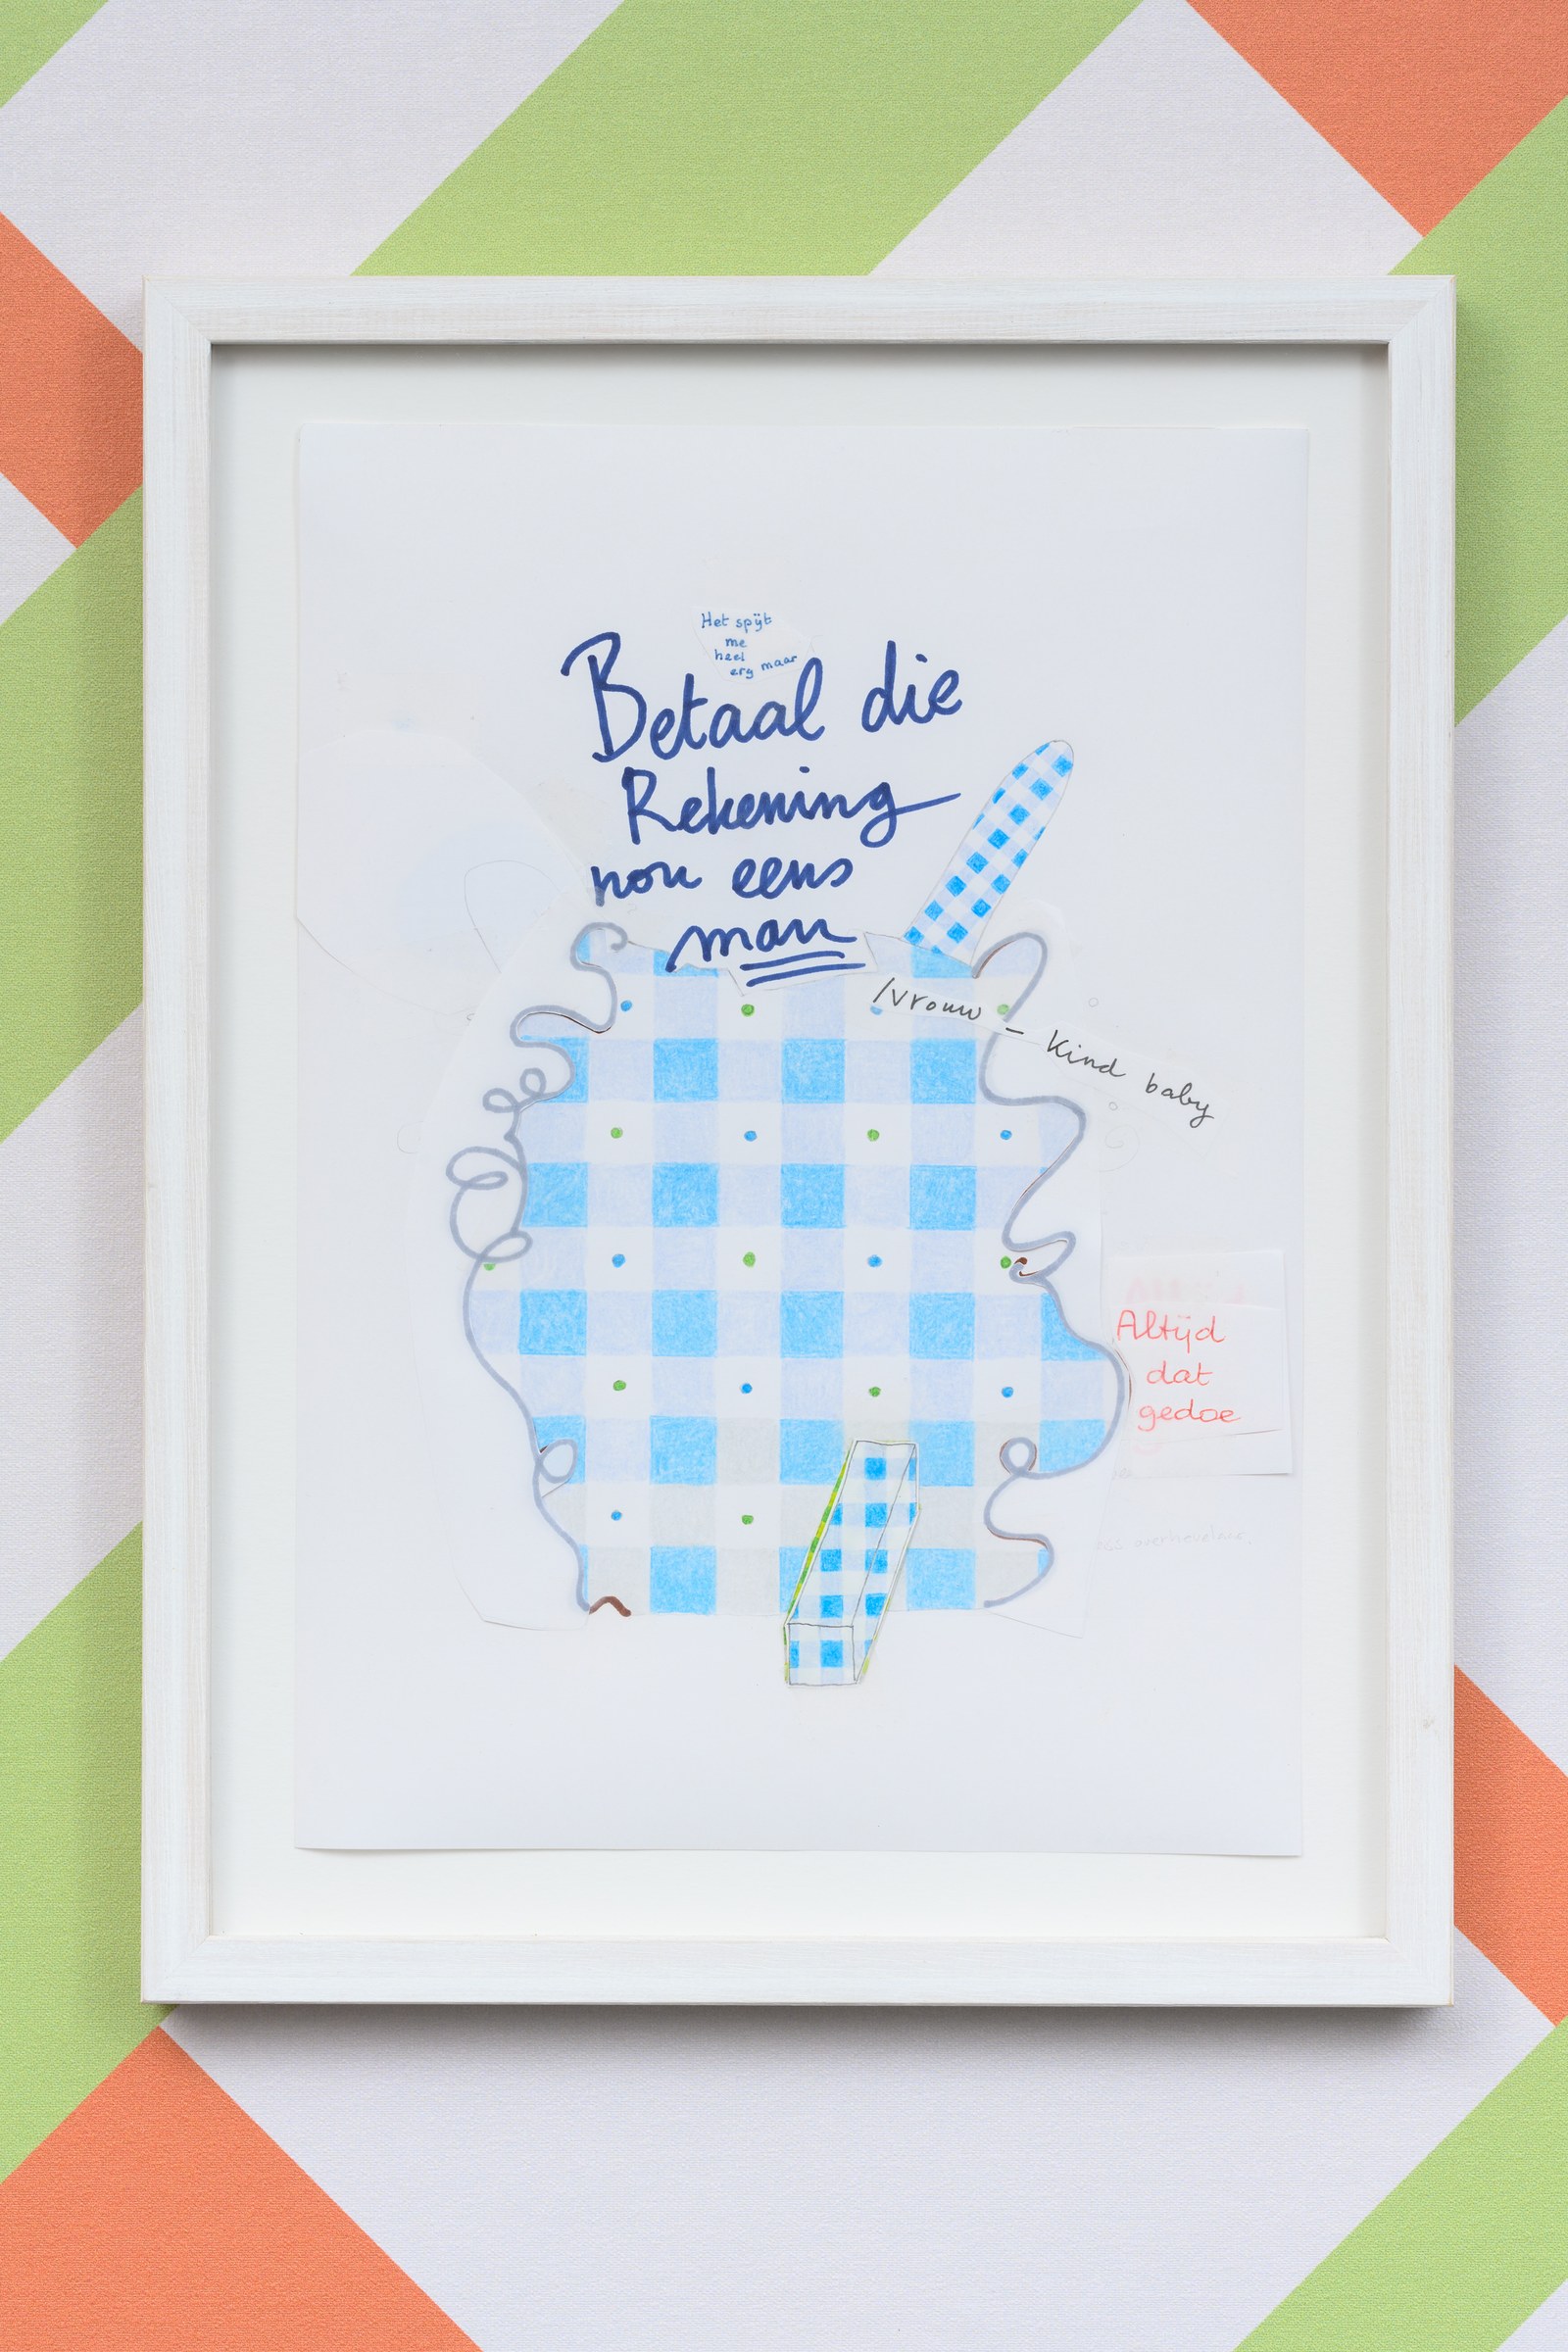 Het spijt
me
heel
erg maar
Betaal die
Rekening
nou eens
man
/vrouw – kind baby
Altijd
dat
gedoe
overhevelen.